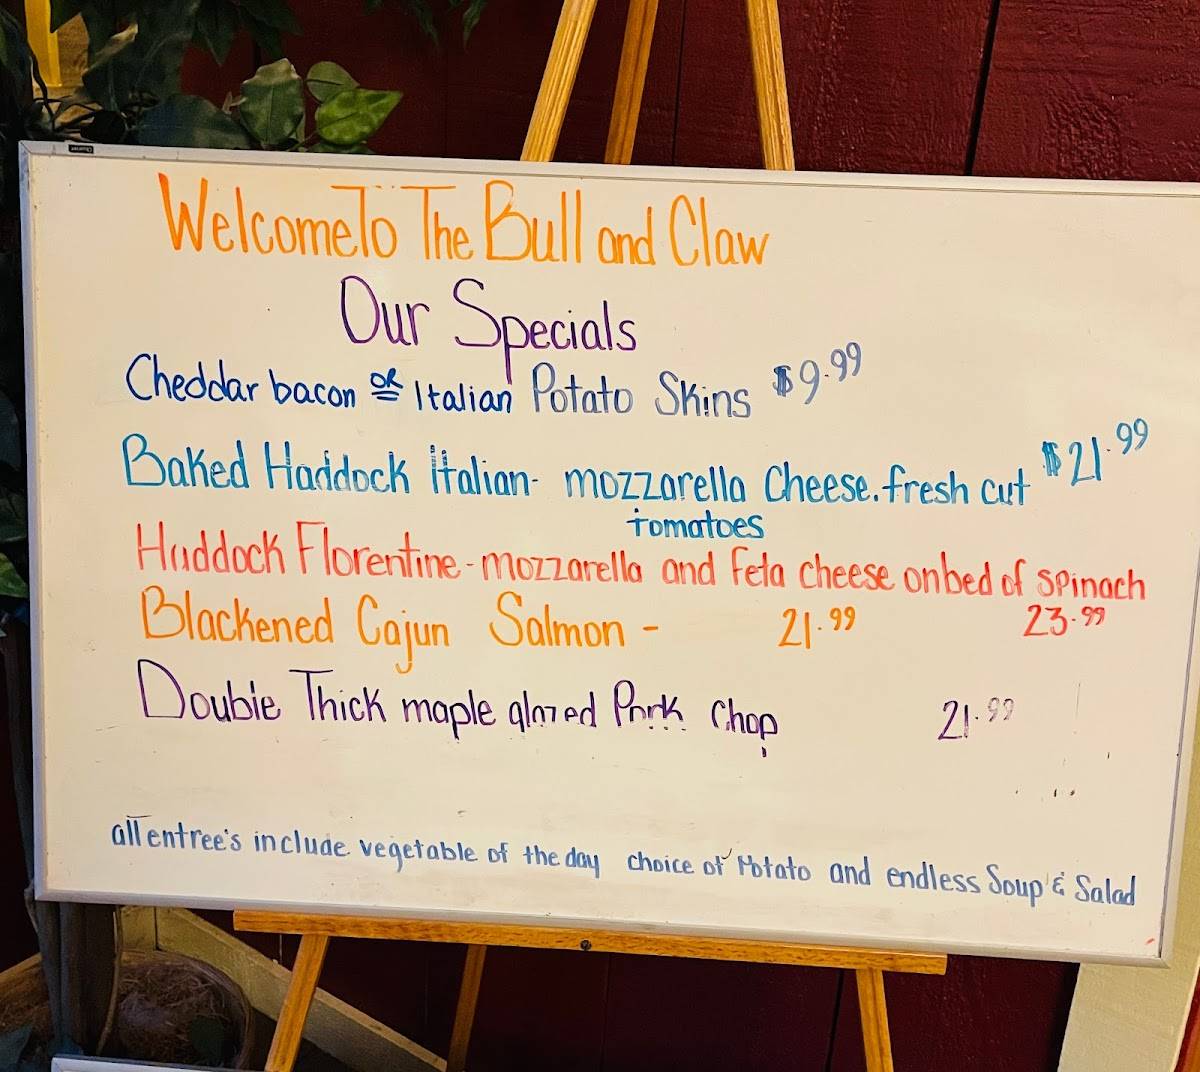 WelcomeTo The Bull and Claw
Our Specials
Cheddar bacon OR Italian Potato Skins $9.99
Baked Haddock Italian- mozzarella Cheese. fresh cut $21.99
tomatoes
Haddock Florentine-mozzarella and feta cheese onbed of spinach
23.99
Blackened Cajun Salmon - 21.99
Double Thick maple glazed Pork Chop 21.99
all entree's include vegetable of the day choice of Potato and endless Soup & Salad